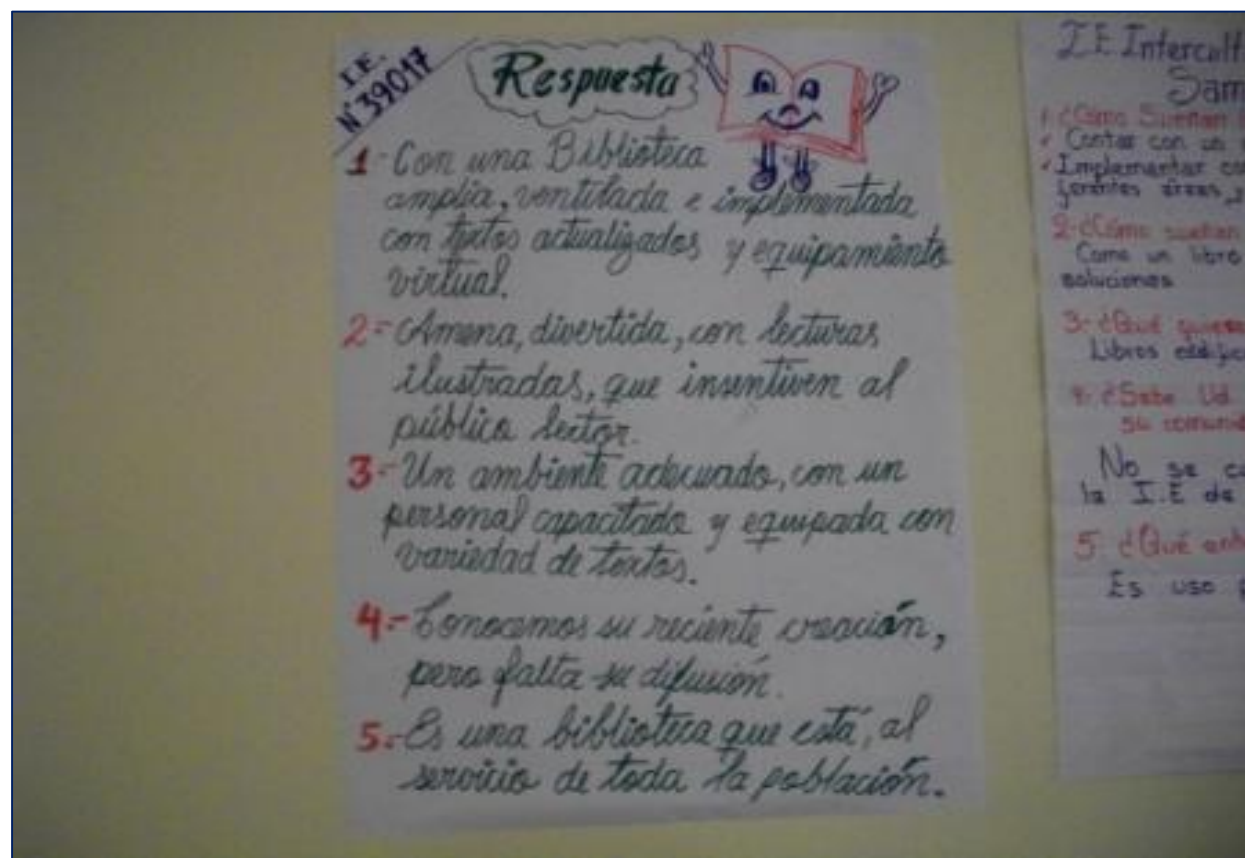 I.E.
N° 39017
Respuesta
1- Con una Biblioteca
amplia, ventilada e implementada
con textos actualizados y equipamiento
virtual.
2- Amena, divertida, con lecturas
ilustradas, que insentiven al
público lector.
3- Un ambiente adecuado, con un
personal capacitado y equipada con
variedad de textos.
4.- Conocemos su reciente creación,
pero falta su difusión.
5.- Es una biblioteca que está, al
servicio de toda la población.
I.E Intercult
Sam
¿Cómo Sueñan
Contar con un
Implementar co
ferentes áreas, y
2- ¿Cómo sueñan
Como un libro
soluciones
3- ¿Qué
Libros
¿Sabe Ud
su comunid
No se co
la I.E de
5- ¿Qué ent
Es uso p